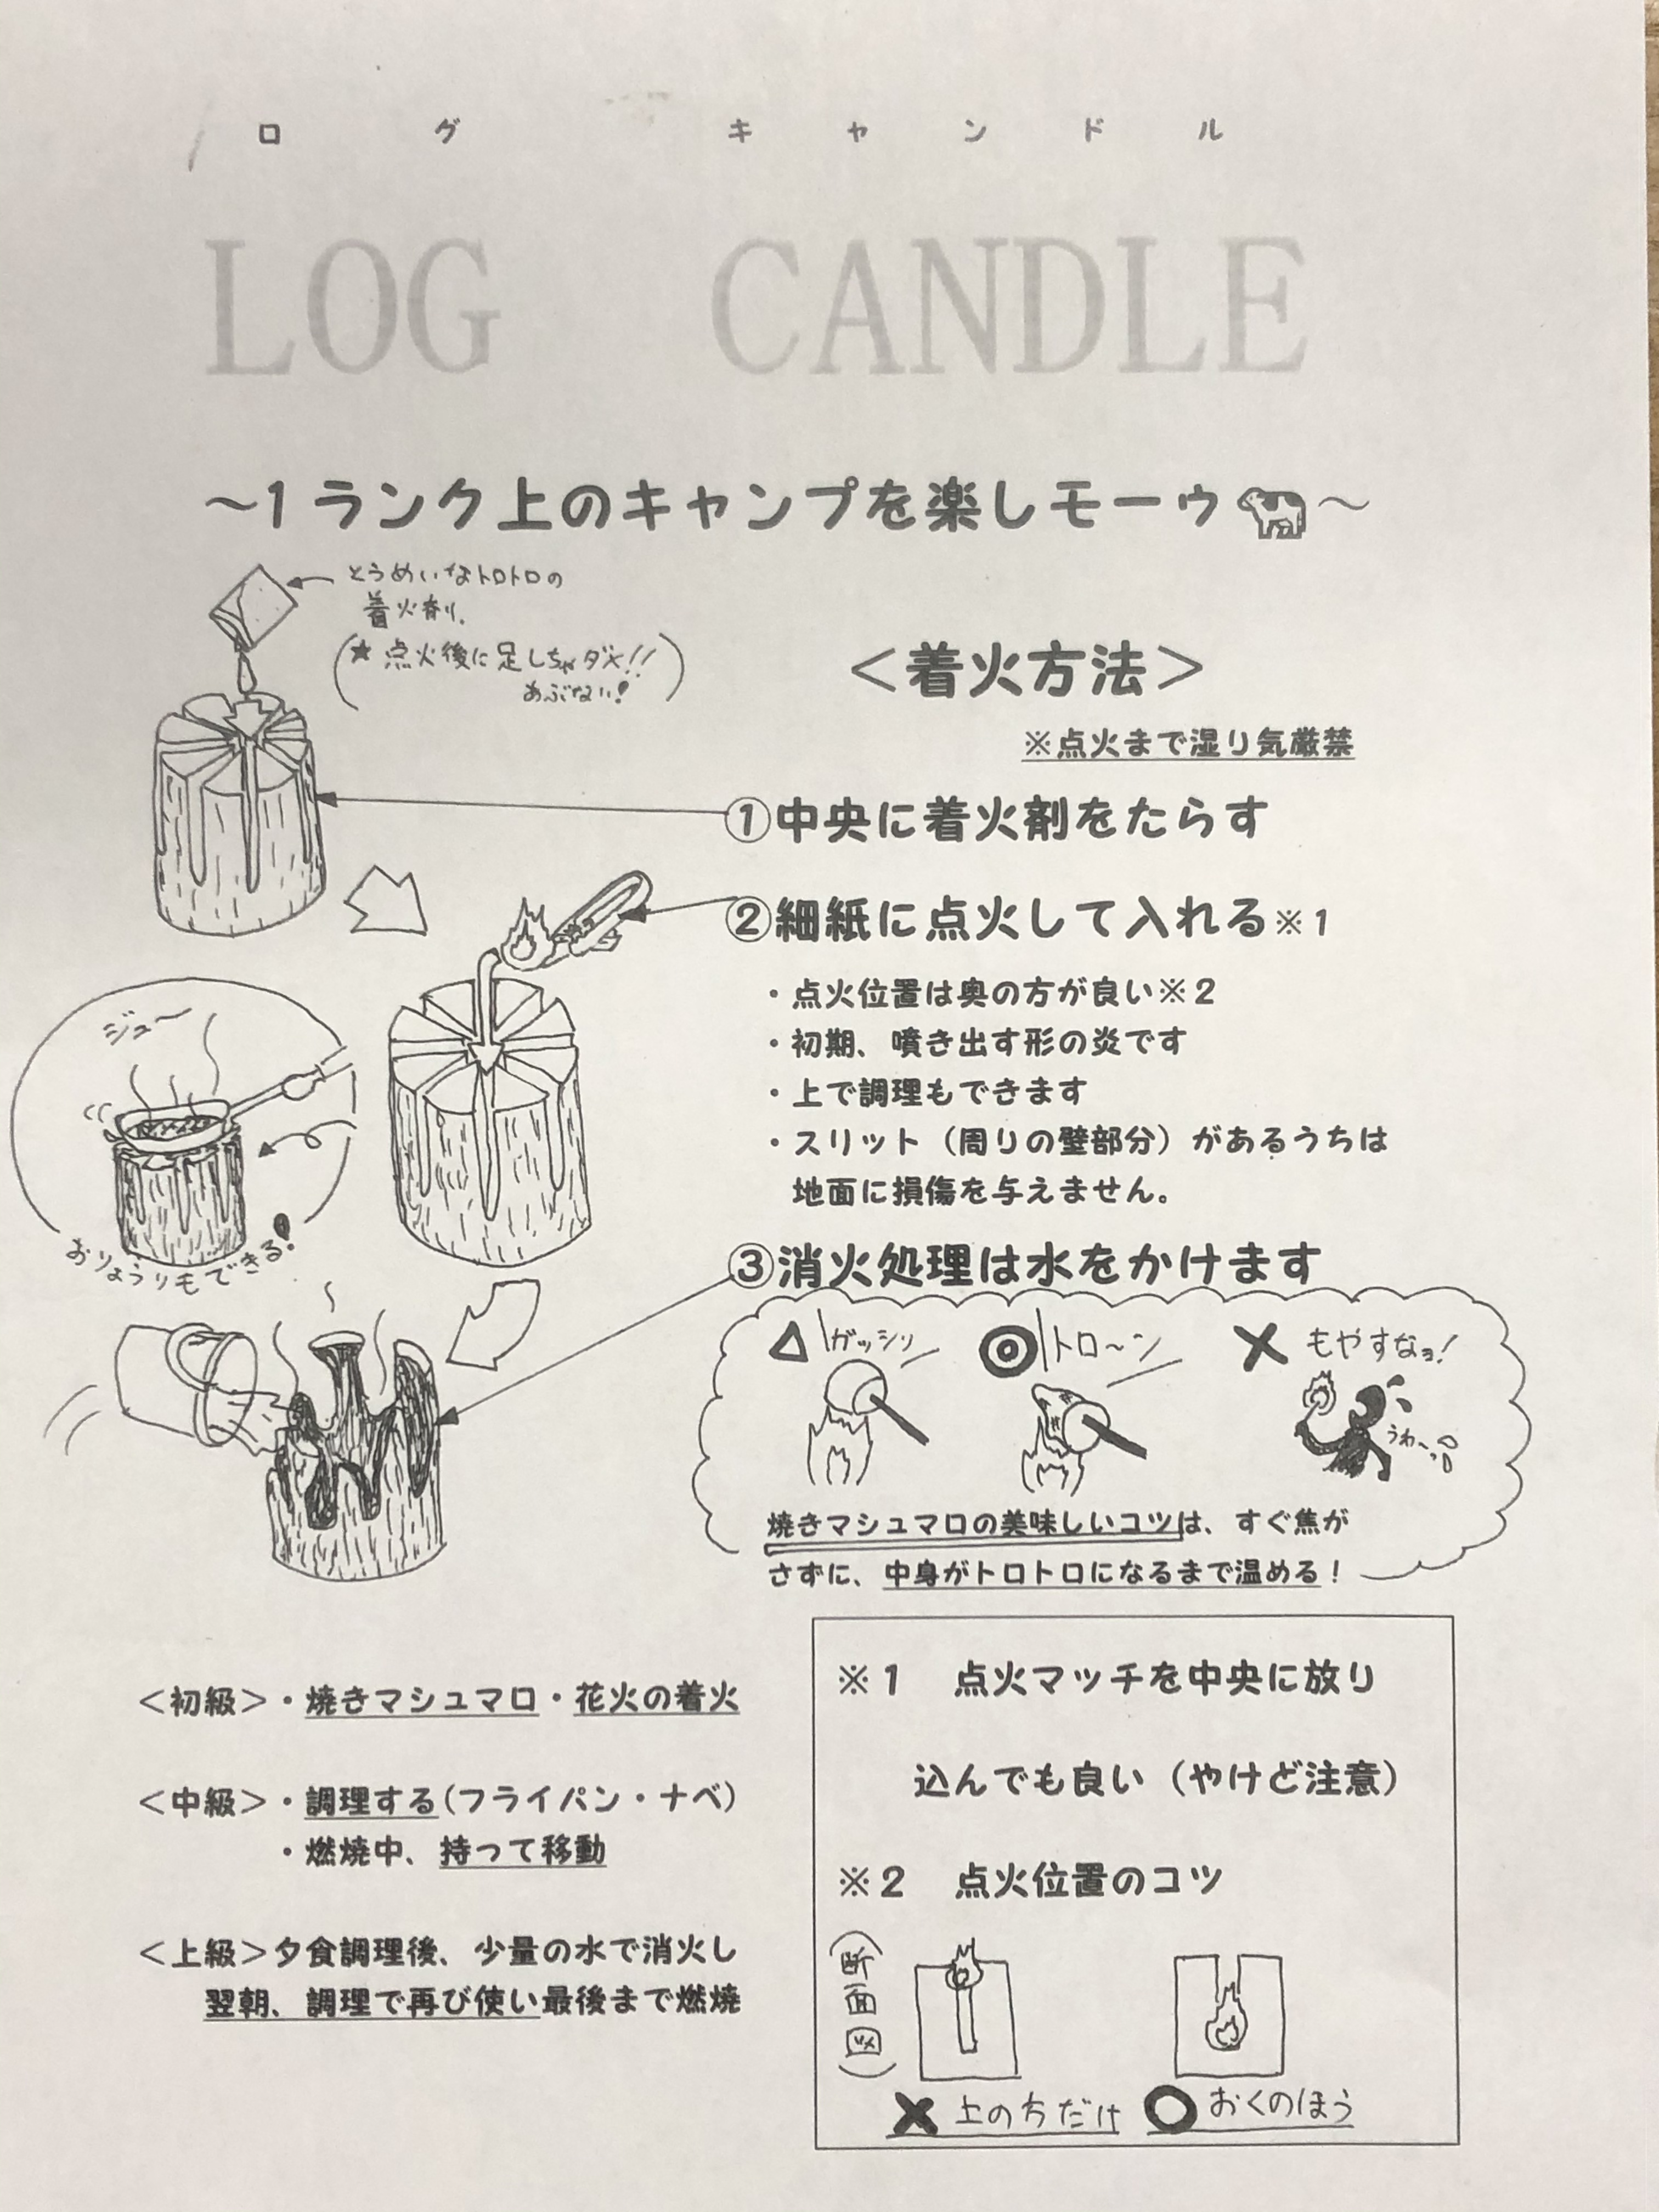 ログ キャンドル
LOG CANDLE
～1ランク上のキャンプを楽しモーゥ～
とうめいなトロトロの
着火剤。
(★点火後に足しちゃダメ!!
あぶない!)
＜着火方法＞
※点火まで湿り気厳禁
①中央に着火剤をたらす
②細紙に点火して入れる※1
・点火位置は奥の方が良い※2
・初期、噴き出す形の炎です
・上で調理もできます
・スリット（周りの壁部分）があるうちは
地面に損傷を与えません。
ジュー
おりょうりもできる!
③消火処理は水をかけます
△ ガッシリ ◎ トロ～ン × もやすなョ!
うわ～
焼きマシュマロの美味しいコツは、すぐ焦が
さずに、中身がトロトロになるまで温める！
＜初級＞・焼きマシュマロ・花火の着火
＜中級＞・調理する(フライパン・ナベ)
・燃焼中、持って移動
＜上級＞夕食調理後、少量の水で消火し
翌朝、調理で再び使い最後まで燃焼
※1 点火マッチを中央に放り
込んでも良い（やけど注意）
※2 点火位置のコツ
(断面図)
× 上の方だけ ○ おくのほう